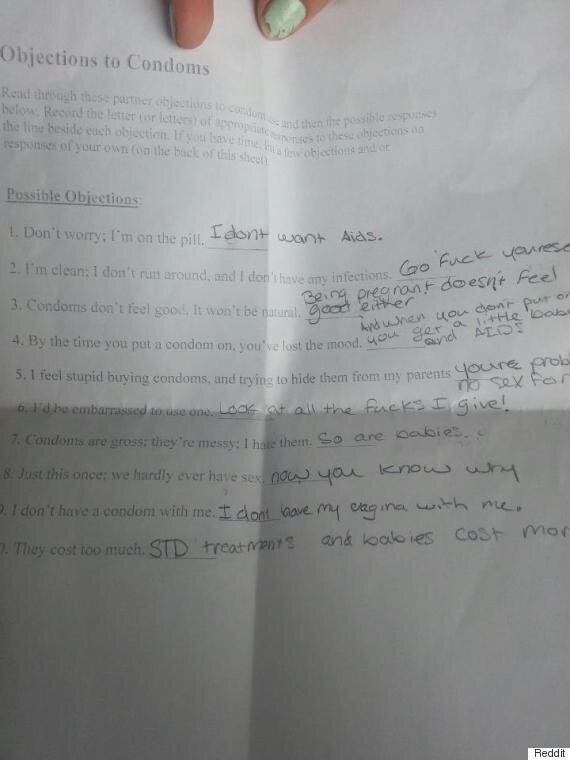 Objections to Condoms
Read through these partner objections to condom use and then the possible responses
below. Record the letter (or letters) of appropriate responses to these objections on
the line beside each objection. If you have time, a few objections and/or
responses of your own (on the back of this sheet)
Possible Objections:
1. Don't worry; I'm on the pill. I dont want Aids.
2. I'm clean; I don't run around, and I don't have any infections. Go Fuck yourse
3. Condoms don't feel good. It won't be natural. Being pregnant doesn't feel
good either
4. By the time you put a condom on, you've lost the mood. And when you don't put on
you get a little bab
and AIDS
5. I feel stupid buying condoms, and trying to hide them from my parents youre prob
no sex for
6. I'd be embarrassed to use one. Look at all the fucks I give!
7. Condoms are gross; they're messy; I hate them. So are babies.
8. Just this once; we hardly ever have sex. now you know why
9. I don't have a condom with me. I dont have my vagina with me.
0. They cost too much. STD treatments and babies cost mor
Reddit